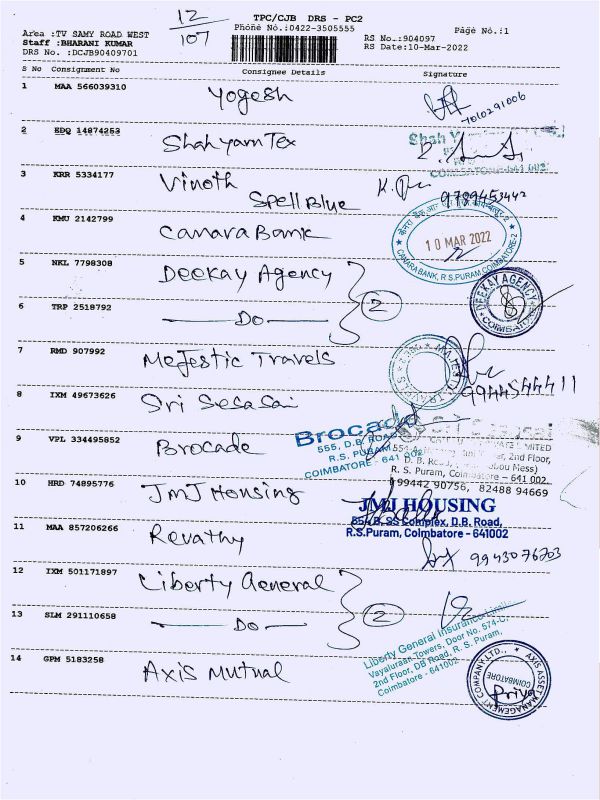 12
107
TPC/CJB DRS - PC2
Area :TV SAMY ROAD WEST
Phone No.:0422-3505555
Page No.:1
Staff :BHARANI KUMAR
RS No.:904097
DRS No. :DCJB90409701
RS Date:10-Mar-2022
S No Consignment No Consignee Details Signature
1 MAA 566039310 Yogesh
7010291006
2 EDQ 14874253 Shahyarn Tex
Shah
3 KRR 5334177 Vinoth
Spell Blue
9789453442
4 KMU 2142799 Canara Bank
10 MAR 2022
CANARA BANK, R.S.PURAM, COIMBATORE-2
5 NKL 7798308 Deekay Agency
2
DEEKAY AGENCY
COIMBATORE
6 TRP 2518792 Do
7 RMD 907992 Majestic Travels
9944544411
8 IXM 49673626 Sri Sesasai
9 VPL 334495852 Brocade
Brocade
555, D.B. ROAD
R.S. PURAM
COIMBATORE - 641 002
LIMITED
2nd Floor,
R. S. Puram, Coimbatore - 641 002.
99442 90756, 82488 94669
10 HRD 74895776 JMJ Housing
JMJ HOUSING
554 B, SS Complex, D.B. Road,
R.S.Puram, Coimbatore - 641002
11 MAA 857206266 Revathy
9943076703
12 IXM 501171897 Liberty General
2
13 SLM 291110658 Do
Liberty General Insurance Limited
Vaysluraan Towers, Door No. 574-C,
2nd Floor, DB Road, R. S. Puram,
Coimbatore - 641002
14 GPM 5183258 Axis Mutual
AXIS ASSET MANAGEMENT COMPANY LTD.,
COIMBATORE
Priya